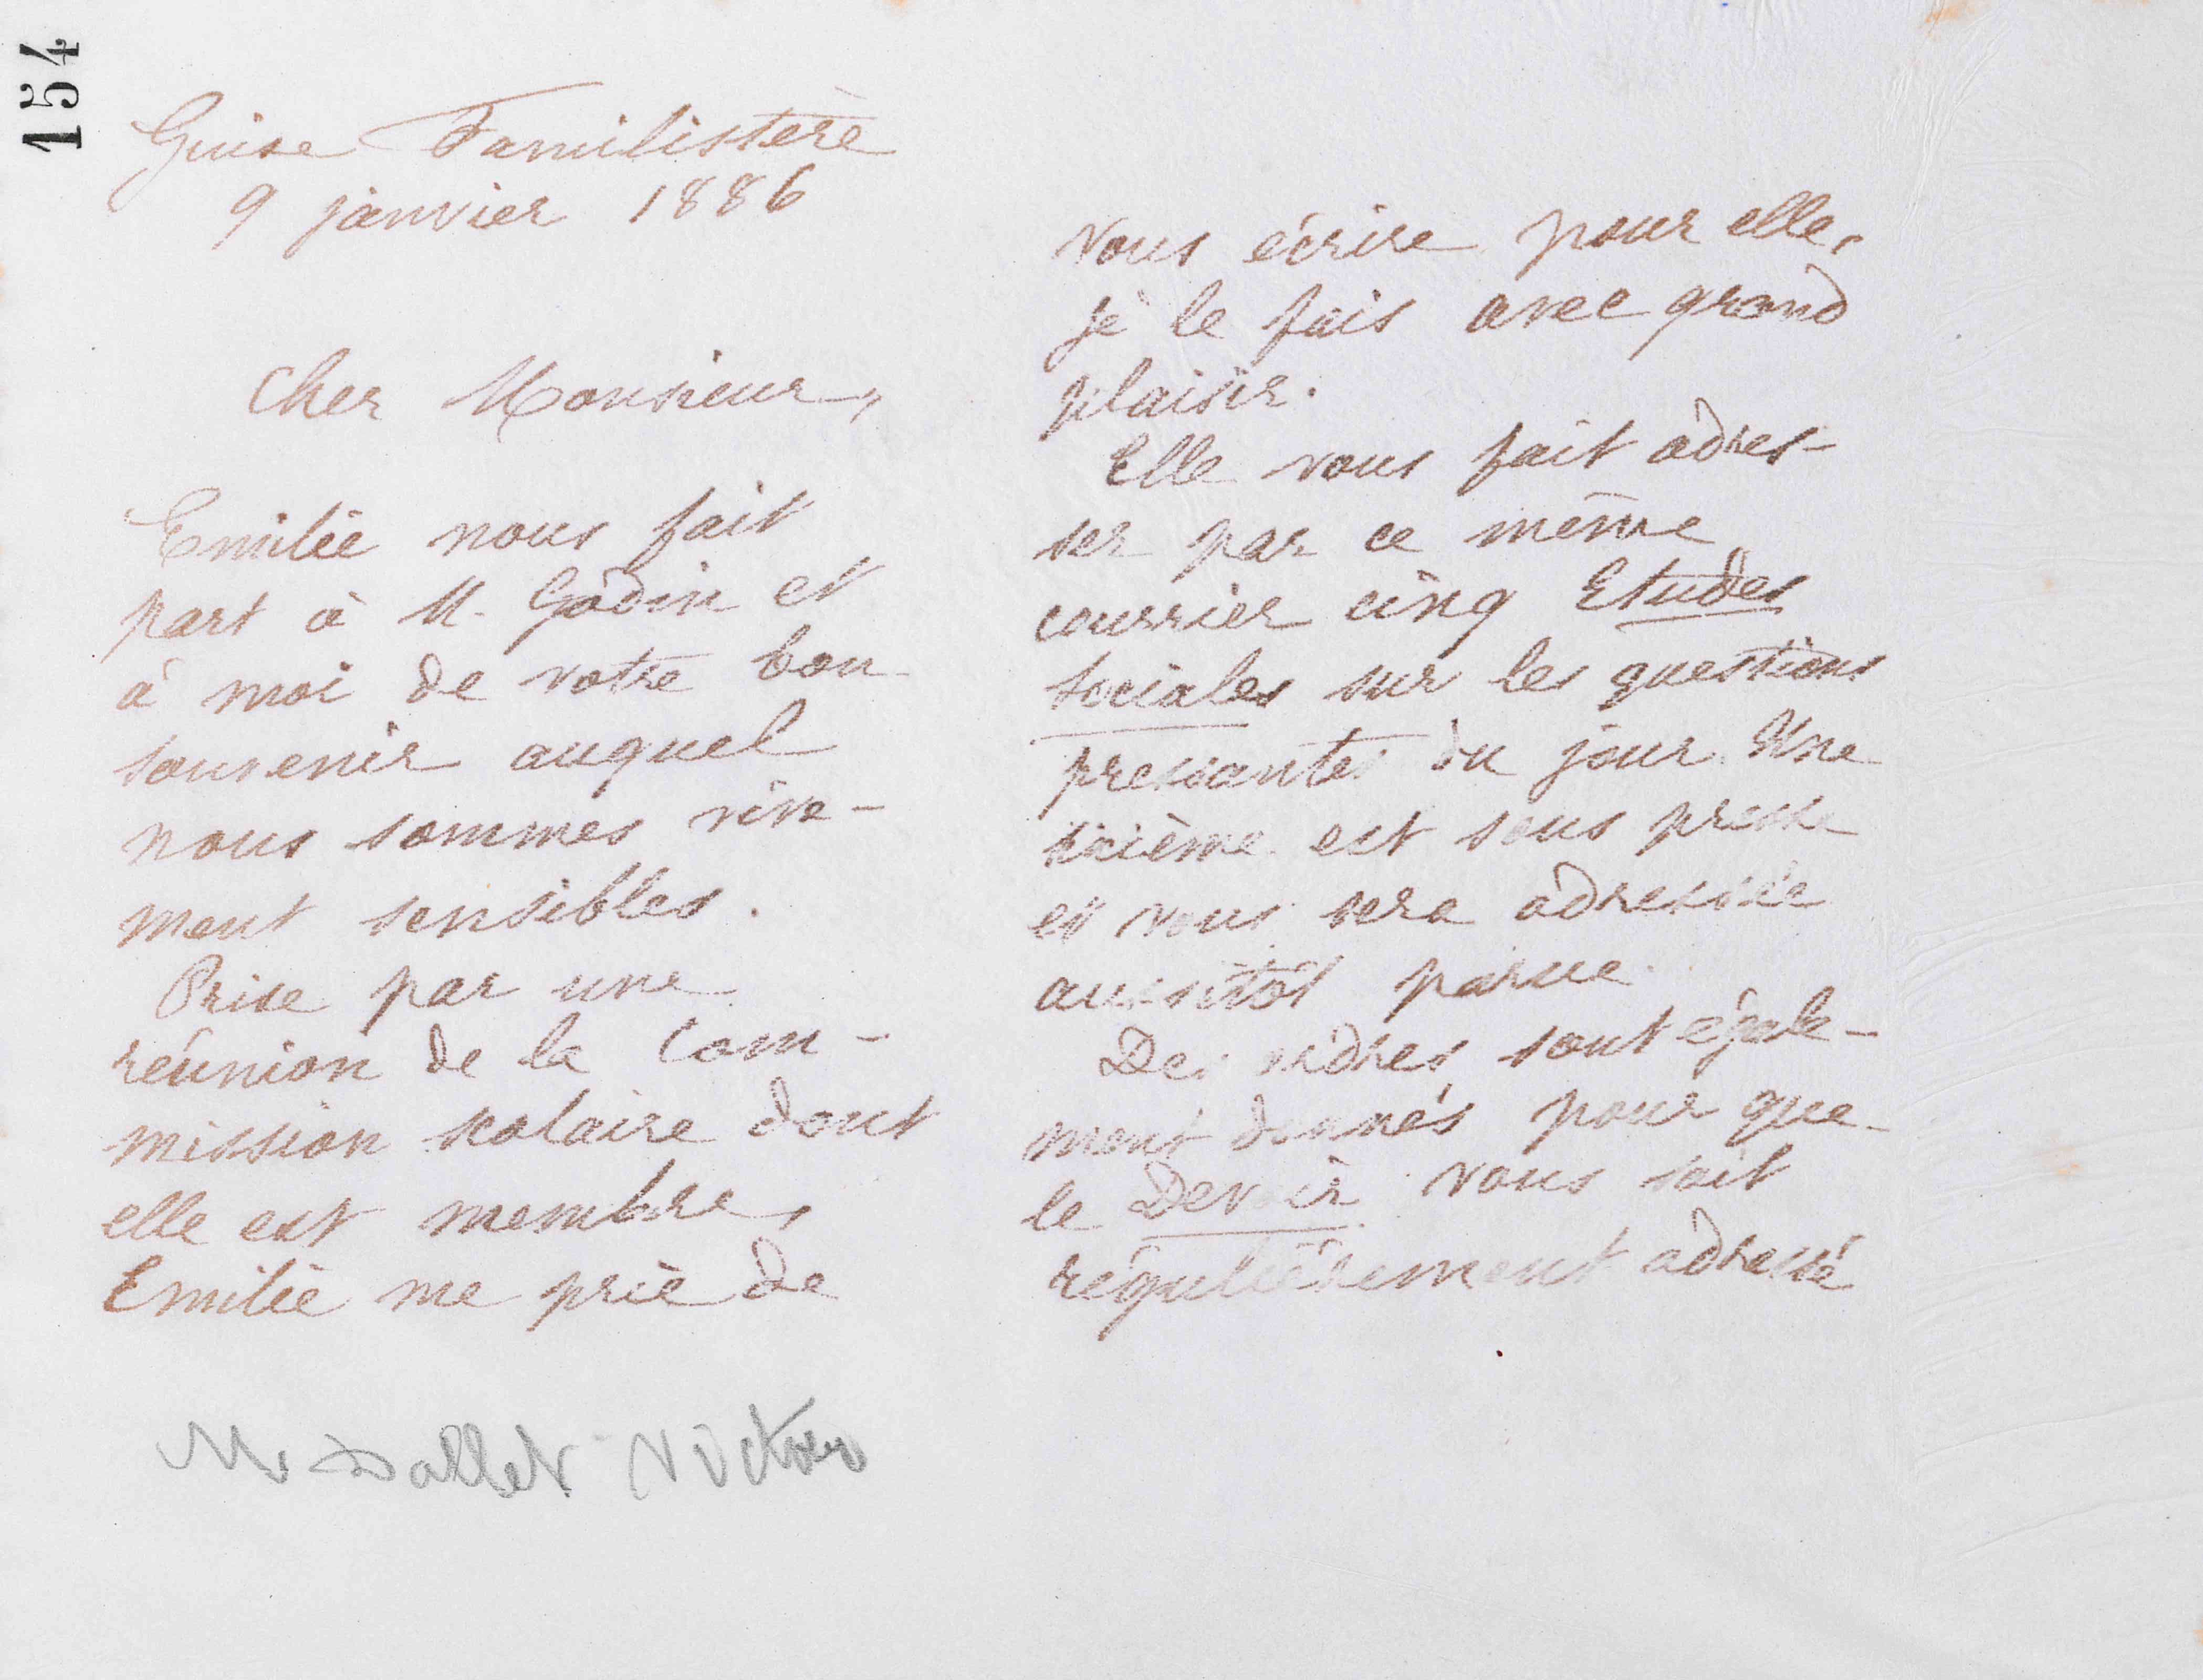 154
Guise Familistère
9 janvier 1886
Cher Monsieur,
Emilie nous fait
part à M. Godin et
à moi de votre bon
souvenir auquel
nous sommes vive-
ment sensibles.
Prise par une
réunion de la Com-
mission scolaire dont
elle est membre,
Emilie me prie de
Mr Dallet Victor
vous écrire pour elle,
je le fais avec grand
plaisir.
Elle vous fait adres-
ser par ce même
courrier cinq Etudes
sociales sur les questions
pressantes du jour. Une
sixième est sous presse
et vous sera adressée
aussitôt parue.
Des ordres sont égale-
ment donnés pour que
le Devoir vous soit
régulièrement adressé